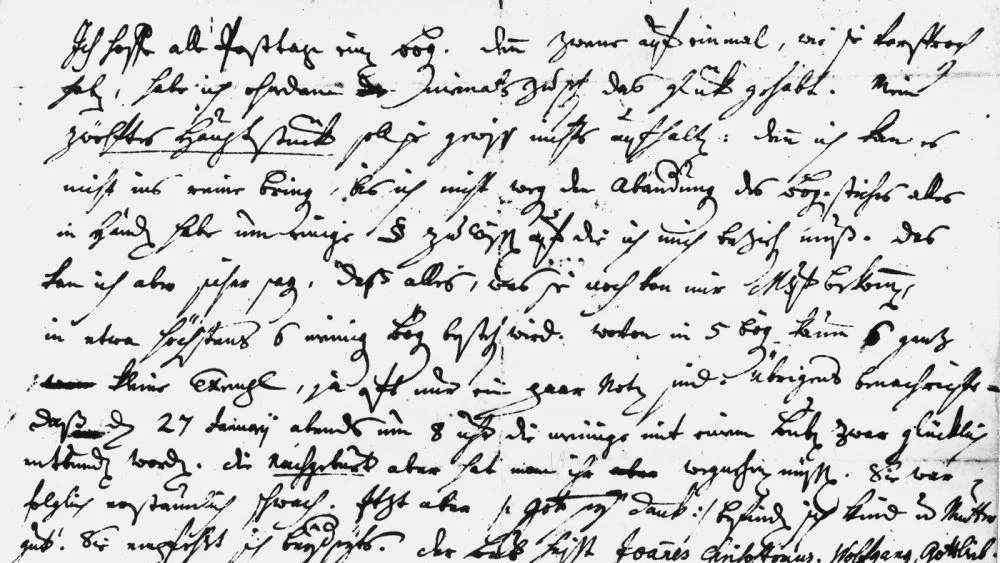 Ich hoffe alle Posttage ein bög. denn zwene auf einmal, wie sie versproch
habn, habe ich ohnedem niemals zusehn das glück gehabt. Mein
zwölftes Hauptstück soll sie gewiß nicht aufhaltn: denn ich kan es
nicht ins reine bringn, bis ich nicht wegn der Abänderung des bögnstriches alles
in Händn habe um einige § zu wissn auf die ich mich beziehn muß. Das
kan ich aber sicher sagn, daß alles, was sie noch von mir Msst bekommn,
in etwa höchstens 6 wenig bög bestehn wird. wovon in 5 bög kaum 6 ganz
kleine Exempl, ja oft nur ein paar Notn sind. übrigens benachrichte-
daß dn 27 Januarij abends um 8 uhr die meinige mit einem Bubn zwar glücklich
entbundn wordn. die Nachgeburt aber hat man ihr wegnehmen müssn. Sie war
folglich erstaunlich schwach. Itzt aber /: gott sey dank :/ befindn sich kind und Mutter
gut. Sie empfehlt sich beyderseits. der Bub heisst Joannes Chrisostomus, Wolfgang, Gottlieb.